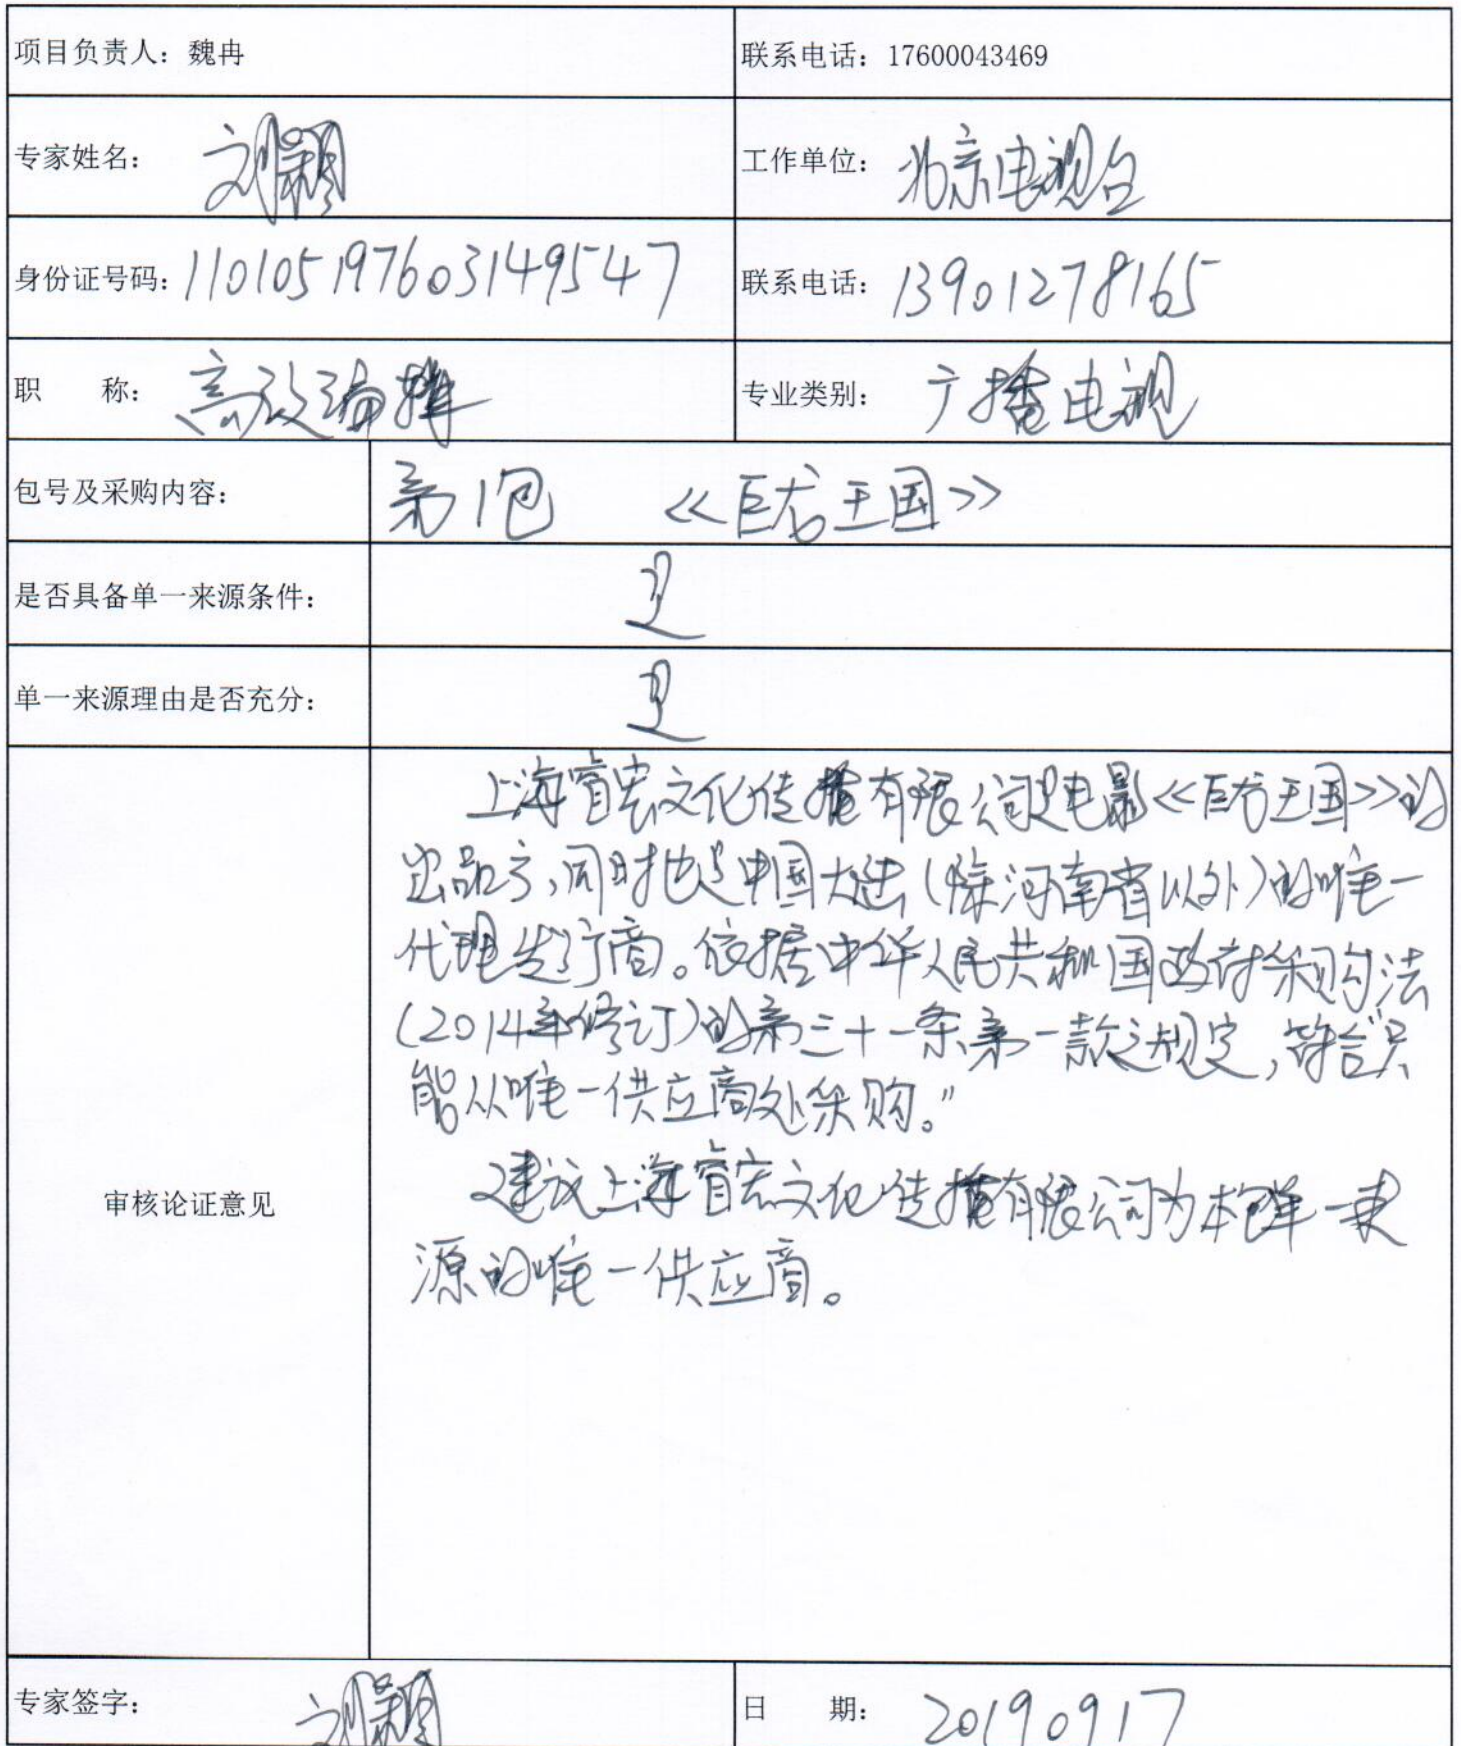 项目负责人：魏冉 联系电话：17600043469
专家姓名：刘颖 工作单位：北京电视台
身份证号码：110105197603149547 联系电话：13901278165
职 称：高级编辑 专业类别：广播电视
包号及采购内容： 第1包 《巨龙王国》
是否具备单一来源条件： 是
单一来源理由是否充分： 是
审核论证意见
上海睿宏文化传播有限公司是电影《巨龙王国》的
出品方，同时也是中国大陆（除河南省以外）的唯一
代理发行商。依据中华人民共和国政府采购法
（2014年修订）的第三十一条第一款之规定，符合“只
能从唯一供应商处采购。”
建议上海睿宏文化传播有限公司为本包单一来
源的唯一供应商。
专家签字：刘颖 日 期：20190917